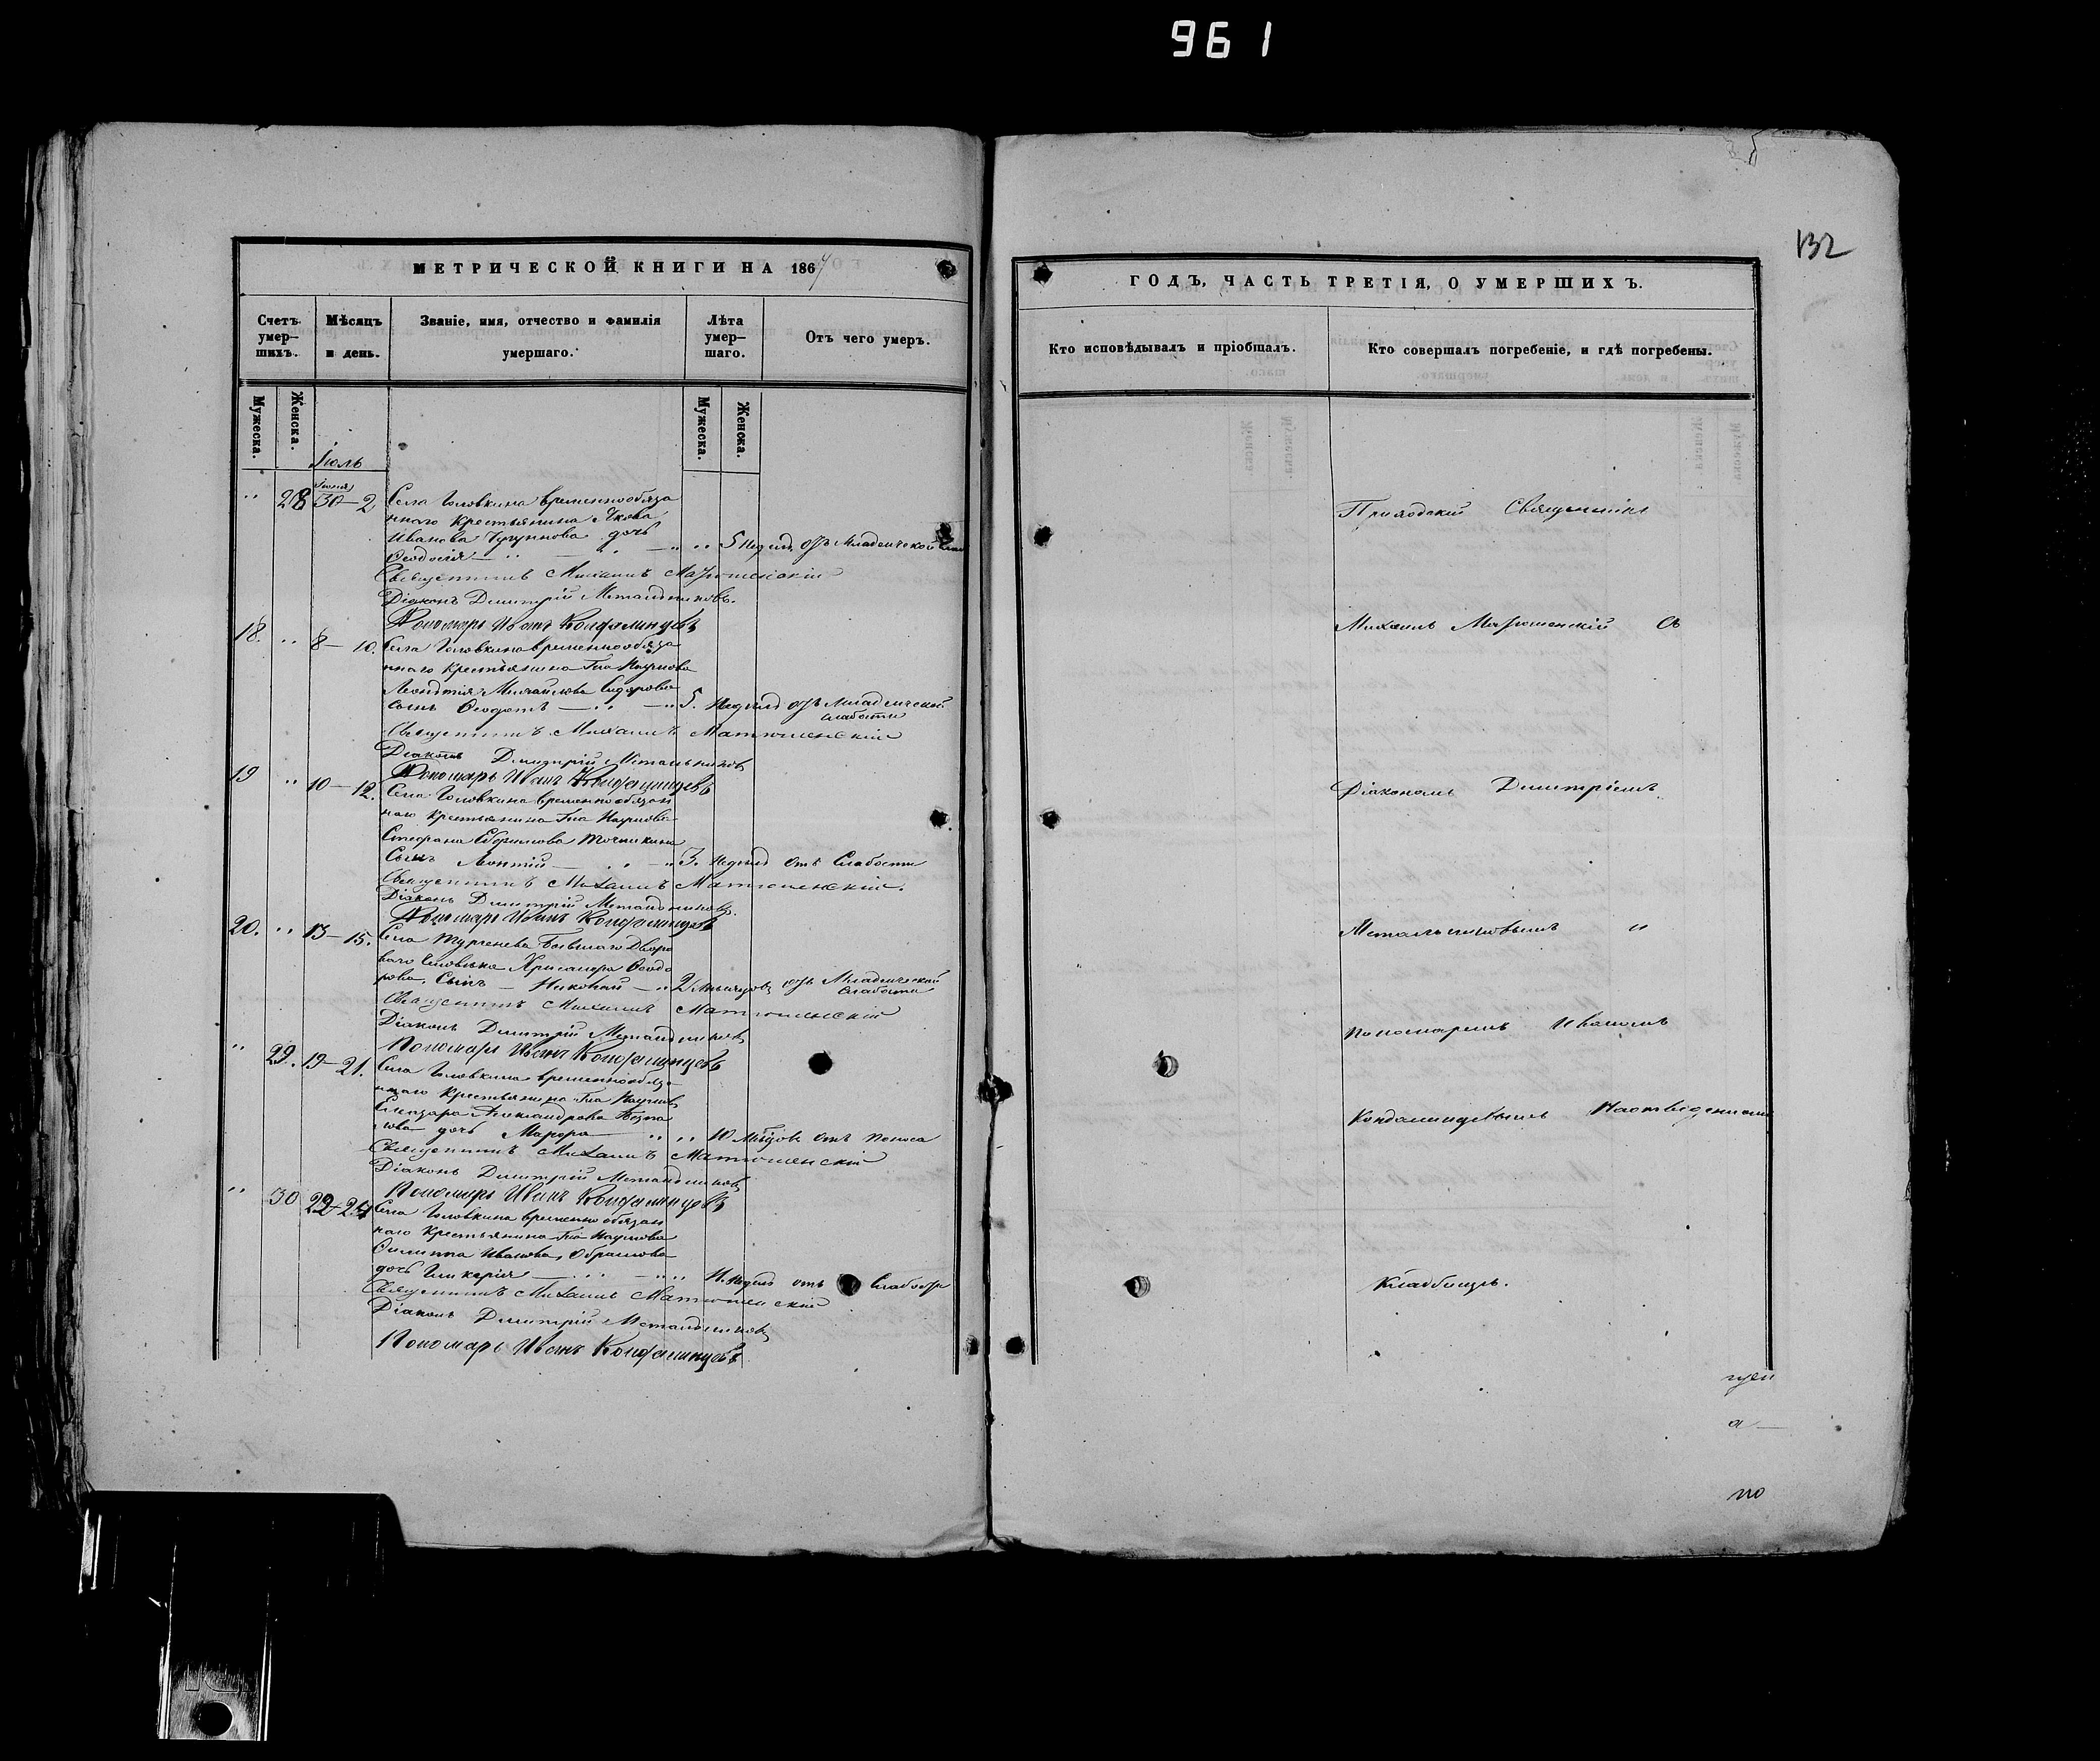 961
132
МЕТРИЧЕСКОЙ КНИГИ НА 1864
Счетъ умер-шихъ.
Мѣсяцъ и день.
Званіе, имя, отчество и фамилія умершаго.
Лѣта умер-шаго.
Отъ чего умеръ.
Мужеска.
Женска.
Мужеска.
Женска.
Іюль
Іюня
" 28 30–2 Села Головкина временнообяза
ннаго крестьянина Якова
Иванова дочь
Ѳеодосія — " — " " 5 недѣл. отъ младенческой
Священникъ Михаилъ Матюшенскій
Діаконъ Димитрій Метальниковъ.
Пономарь Иванъ Кондалинцевъ
18. " 8–10. Села Головкина временнообяза
ннаго крестьянина Наумова
Леонтія Михайлова Сидорова
сынъ Ѳеодотъ — " — " 5. недѣль отъ младенческой
слабости
Священникъ Михаилъ Матюшенскій
Діаконъ Димитрій Метальниковъ
Пономарь Иванъ Кондалинцевъ
19 " 10–12. Села Головкина временнообязан
наго крестьянина Наумова
Стефана Ефимова Точилкина
Сынъ Леонтій — " — " 3. недѣль отъ слабости
Священникъ Михаилъ Матюшенскій.
Діаконъ Димитрій Метальниковъ.
Пономарь Иванъ Кондалинцевъ
20. " 13–15. Села Тургенева бывшаго дворо
ваго человѣка Ѳеодо
рова, Сынъ — Николай — " 2 мѣсяцовъ отъ младенческой
слабости
Священникъ Михаилъ Матюшенскій
Діаконъ Димитрій Метальниковъ
Пономарь Иванъ Кондалинцевъ
" 29. 19–21. Села Головкина временнообяза
ннаго крестьянина Наумова
Елеазара Александрова
дочь Марѳа — " " 10 отъ поноса
Священникъ Михаилъ Матюшенскій
Діаконъ Димитрій Метальниковъ
Пономарь Иванъ Кондалинцевъ
" 30 22–24 Села Головкина временнообязан
наго крестьянина Наумова
Филиппа Иванова
дочь Гликерія — " — " " 11. недѣль отъ слабости
Священникъ Михаилъ Матюшенскій
Діаконъ Димитрій Метальниковъ
Пономарь Иванъ Кондалинцевъ
ГОДЪ, ЧАСТЬ ТРЕТІЯ, О УМЕРШИХЪ.
Кто исповѣдывалъ и пріобщалъ.
Кто совершалъ погребеніе, и гдѣ погребены.
Приходскій Священникъ
Михаилъ Матюшенскій съ
Діакономъ Димитріемъ
Метальниковымъ и
Пономаремъ Иваномъ
Кондалинцевымъ На отведенномъ
Кладбищѣ.
а —
по